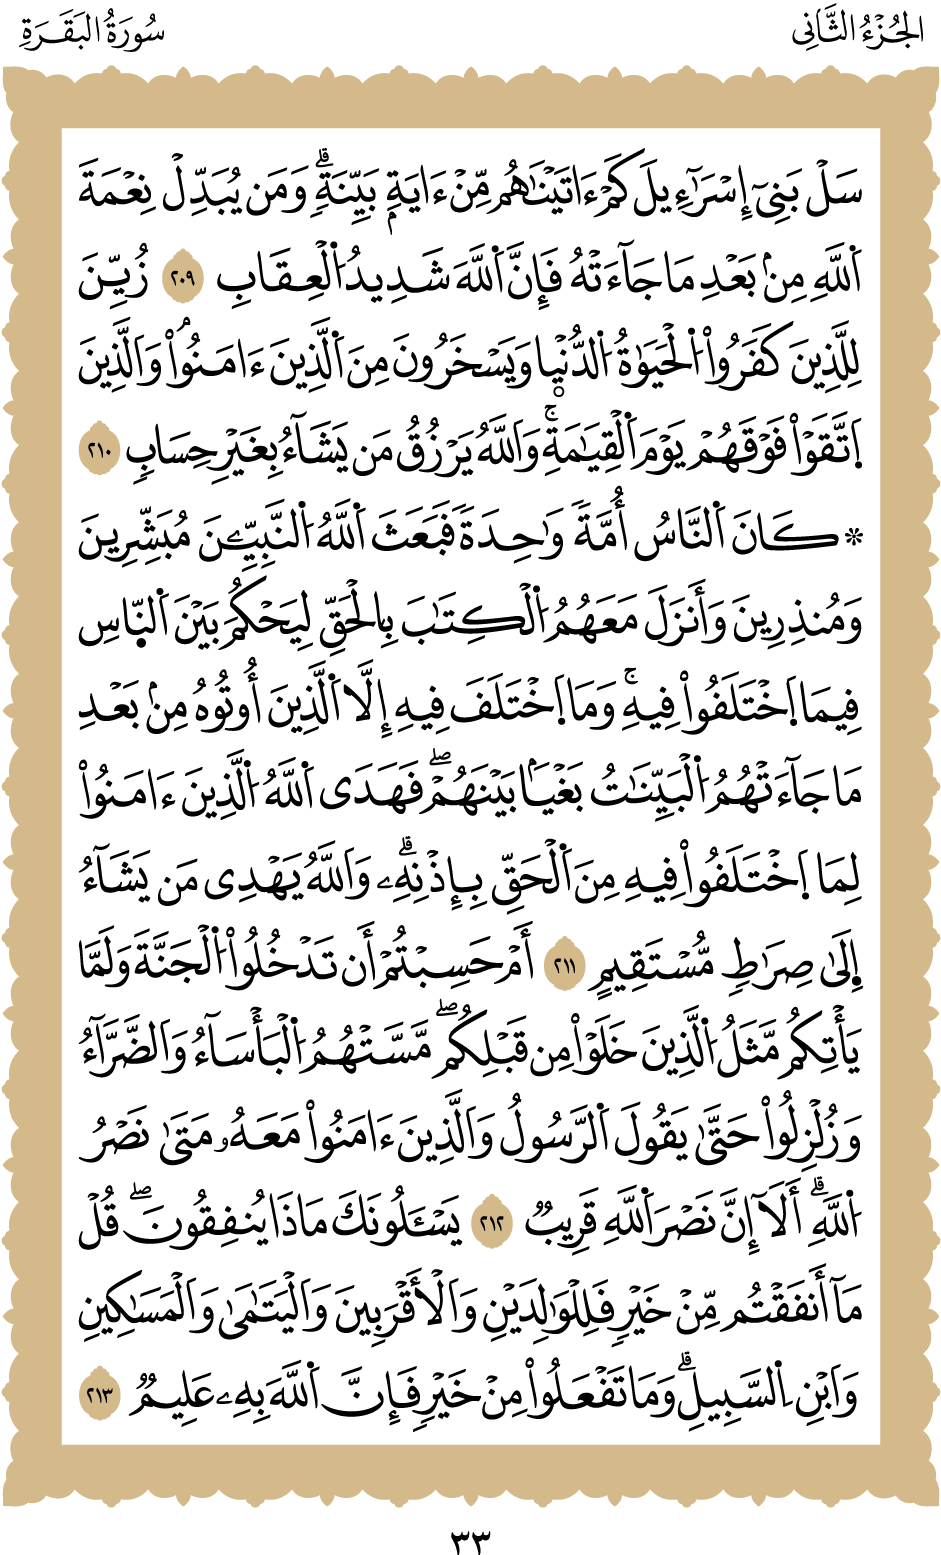 الجُزْءُ الثَّانِي
سُورَةُ البَقَرَةِ
سَلْ بَنِيٓ إِسْرَآءِيلَ كَمْ ءَاتَيْنَٰهُم مِّنْ ءَايَةِۭ بَيِّنَةٖۗ وَمَن يُبَدِّلْ نِعْمَةَ
اَ۬للَّهِ مِنۢ بَعْدِ مَا جَآءَتْهُ فَإِنَّ اَ۬للَّهَ شَدِيدُ اُ۬لْعِقَابِ ٢٠٩ زُيِّنَ
لِلَّذِينَ كَفَرُواْ اُ۬لْحَيَوٰةُ اُ۬لدُّنْي۪ا وَيَسْخَرُونَ مِنَ اَ۬لَّذِينَ ءَامَنُواْۘ وَالَّذِينَ
اَ۪تَّقَوْاْ فَوْقَهُمْ يَوْمَ اَ۬لْقِيَٰمَةِۚ وَاللَّهُ يَرْزُقُ مَن يَشَآءُ بِغَيْرِ حِسَابٖ ٢١٠
۞كَانَ اَ۬لنَّاسُ أُمَّةٗ وَٰحِدَةٗ فَبَعَثَ اَ۬للَّهُ اُ۬لنَّبِيِّـۧنَ مُبَشِّرِينَ
وَمُنذِرِينَ وَأَنزَلَ مَعَهُمُ اُ۬لْكِتَٰبَ بِالْحَقِّ لِيَحْكُمَ بَيْنَ اَ۬لنّ۪اسِ
فِيمَا اَ۪خْتَلَفُواْ فِيهِۚ وَمَا اَ۪خْتَلَفَ فِيهِ إِلَّا اَ۬لَّذِينَ أُوتُوهُ مِنۢ بَعْدِ
مَا جَآءَتْهُمُ اُ۬لْبَيِّنَٰتُ بَغْيَاۢ بَيْنَهُمْۖ فَهَدَى اَ۬للَّهُ اُ۬لَّذِينَ ءَامَنُواْ
لِمَا اَ۪خْتَلَفُواْ فِيهِ مِنَ اَ۬لْحَقِّ بِإِذْنِهِۦۗ وَاَللَّهُ يَهْدِي مَن يَشَآءُ
اِ۪لَىٰ صِرَٰطٖ مُّسْتَقِيمٍ ٢١١ أَمْ حَسِبْتُمْ أَن تَدْخُلُواْ اُ۬لْجَنَّةَ وَلَمَّا
يَأْتِكُم مَّثَلُ اُ۬لَّذِينَ خَلَوْاْ مِن قَبْلِكُمۖ مَّسَّتْهُمُ اُ۬لْبَأْسَآءُ وَالضَّرَّآءُ
وَزُلْزِلُواْ حَتَّىٰ يَقُولَ اَ۬لرَّسُولُ وَالَّذِينَ ءَامَنُواْ مَعَهُۥ مَتَىٰ نَصْرُ
اُ۬للَّهِۗ أَلَآ إِنَّ نَصْرَ اَ۬للَّهِ قَرِيبٞ ٢١٢ يَسْـَٔلُونَكَ مَاذَا يُنفِقُونَۖ قُلْ
مَآ أَنفَقْتُم مِّنْ خَيْرٖ فَلِلْوَٰلِدَيْنِ وَالْأَقْرَبِينَ وَالْيَتَٰمَىٰ وَالْمَسَٰكِينِ
وَابْنِ اِ۬لسَّبِيلِۗ وَمَا تَفْعَلُواْ مِنْ خَيْرٖ فَإِنَّ اَ۬للَّهَ بِهِۦ عَلِيمٞ ٢١٣
٣٣